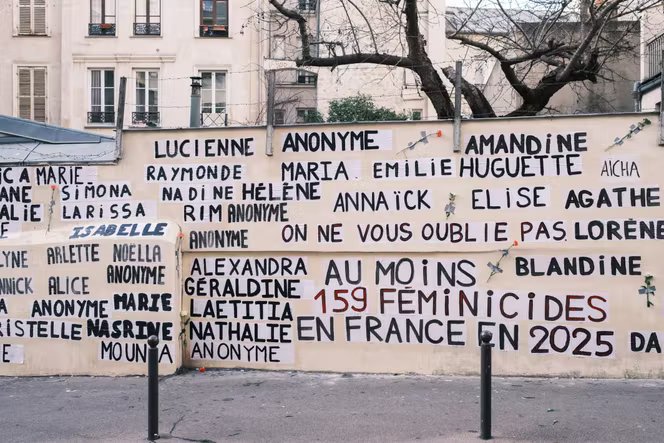 LUCIENNE ANONYME AMANDINE
MARIE RAYMONDE MARIA EMILIE HUGUETTE AICHA
SIMONA NADINE HÉLÈNE ANNAÏCK ELISE AGATHE
LARISSA RIM ANONYME
ISABELLE ANONYME ON NE VOUS OUBLIE PAS LORÈNE
ARLETTE NOËLLA ALEXANDRA AU MOINS BLANDINE
ALICE ANONYME GÉRALDINE 159 FÉMINICIDES
ANONYME MARIE LAETITIA
NASRINE NATHALIE EN FRANCE EN 2025
MOUNIA ANONYME